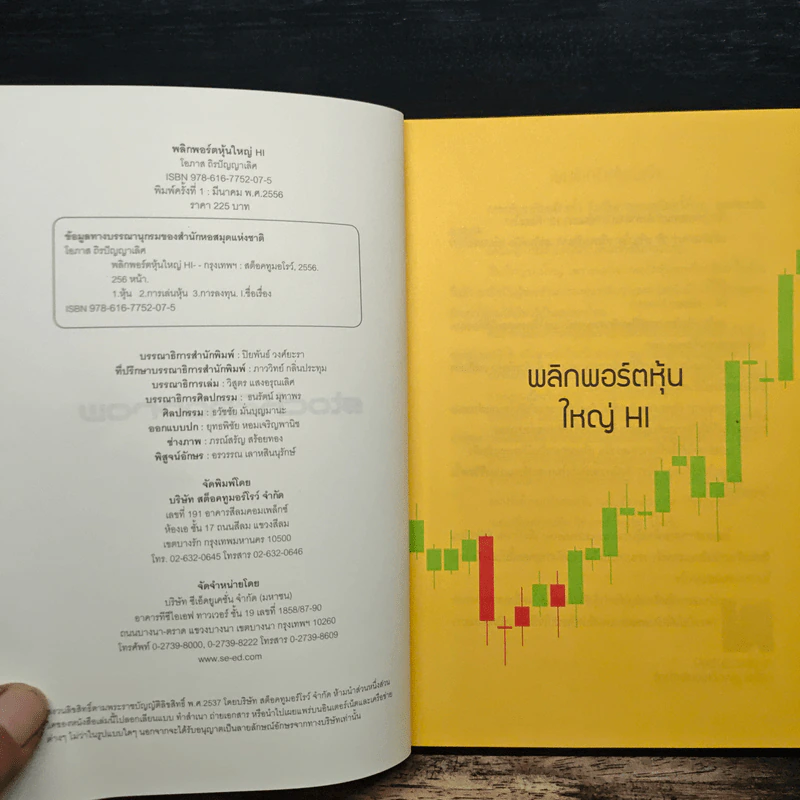 พลิกพอร์ตหุ้นใหญ่ HI
โอภาส ถิรปัญญาเลิศ
ISBN 978-616-7752-07-5
พิมพ์ครั้งที่ 1 : มีนาคม พ.ศ.2556
ราคา 225 บาท
ข้อมูลทางบรรณานุกรมของสำนักหอสมุดแห่งชาติ
โอภาส ถิรปัญญาเลิศ
พลิกพอร์ตหุ้นใหญ่ HI- - กรุงเทพฯ : สต็อคทูมอโรว์, 2556.
256 หน้า.
1.หุ้น 2.การเล่นหุ้น 3.การลงทุน. I.ชื่อเรื่อง
ISBN 978-616-7752-07-5
บรรณาธิการสำนักพิมพ์ : ปิยพันธ์ วงศ์ยะรา
ที่ปรึกษาบรรณาธิการสำนักพิมพ์ : ภาววิทย์ กลิ่นประทุม
บรรณาธิการเล่ม : วิสูตร แสงอรุณเลิศ
บรรณาธิการศิลปกรรม : ธนรัตน์ มุทาพร
ศิลปกรรม : ธวัชชัย มั่นบุญมานะ
ออกแบบปก : ยุทธพิชัย หอมเจริญพานิช
ช่างภาพ : ภรณ์สรัญ สร้อยทอง
พิสูจน์อักษร : อรวรรณ เลาหสินนุรักษ์
จัดพิมพ์โดย
บริษัท สต็อคทูมอร์โรว์ จำกัด
เลขที่ 191 อาคารสีลมคอมเพล็กซ์
ห้องเอ ชั้น 17 ถนนสีลม แขวงสีลม
เขตบางรัก กรุงเทพมหานคร 10500
โทร. 02-632-0645 โทรสาร 02-632-0646
จัดจำหน่ายโดย
บริษัท ซีเอ็ดยูเคชั่น จำกัด (มหาชน)
อาคารทีซีไอเอฟ ทาวเวอร์ ชั้น 19 เลขที่ 1858/87-90
ถนนบางนา-ตราด แขวงบางนา เขตบางนา กรุงเทพฯ 10260
โทรศัพท์ 0-2739-8000, 0-2739-8222 โทรสาร 0-2739-8609
www.se-ed.com
งวนลิขสิทธิ์ตามพระราชบัญญัติลิขสิทธิ์ พ.ศ.2537 โดยบริษัท สต็อคทูมอร์โรว์ จำกัด ห้ามนำส่วนหนึ่งส่วน
ใดของหนังสือเล่มนี้ไปลอกเลียนแบบ ทำสำเนา ถ่ายเอกสาร หรือนำไปเผยแพร่บนอินเตอร์เน็ตและเครือข่าย
ต่างๆ ไม่ว่าในรูปแบบใดๆ นอกจากจะได้รับอนุญาตเป็นลายลักษณ์อักษรจากทางบริษัทเท่านั้น
พลิกพอร์ตหุ้น
ใหญ่ HI